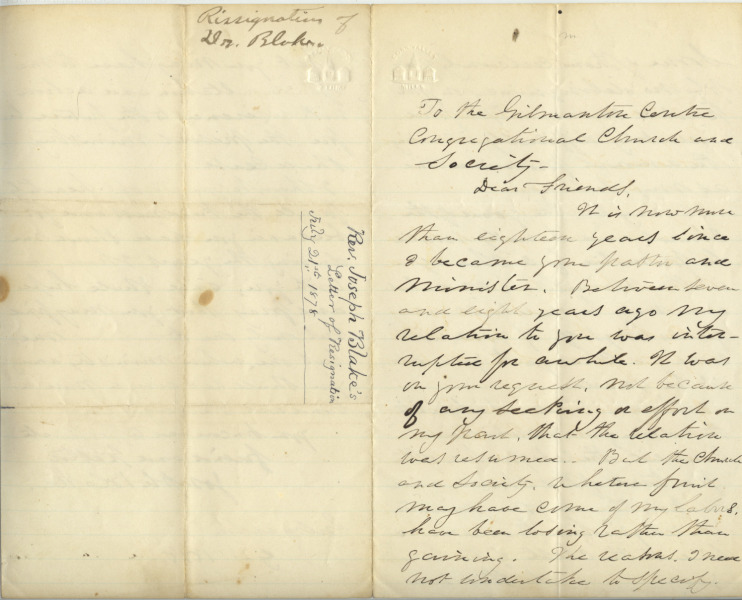 Rissignation of
Dr. Blake.
Rev. Joseph Blake's
Letter of Resignation
July 21st 1878
To the Gilmanton Centre
Congregational Church and
Society–
Dear Friends,
It is now more
than eighteen years since
I became your pastor and
Minister. Between seven
and eight years ago my
relation to you was inter-
rupted for awhile. It was
on your request, not because
of any seeking or effort on
my part, that the relation
was resumed.. But the Church
and Society, whatever fruit
may have come of my labors,
have been losing rather than
gaining. The reasons I need
not undertake to specify.